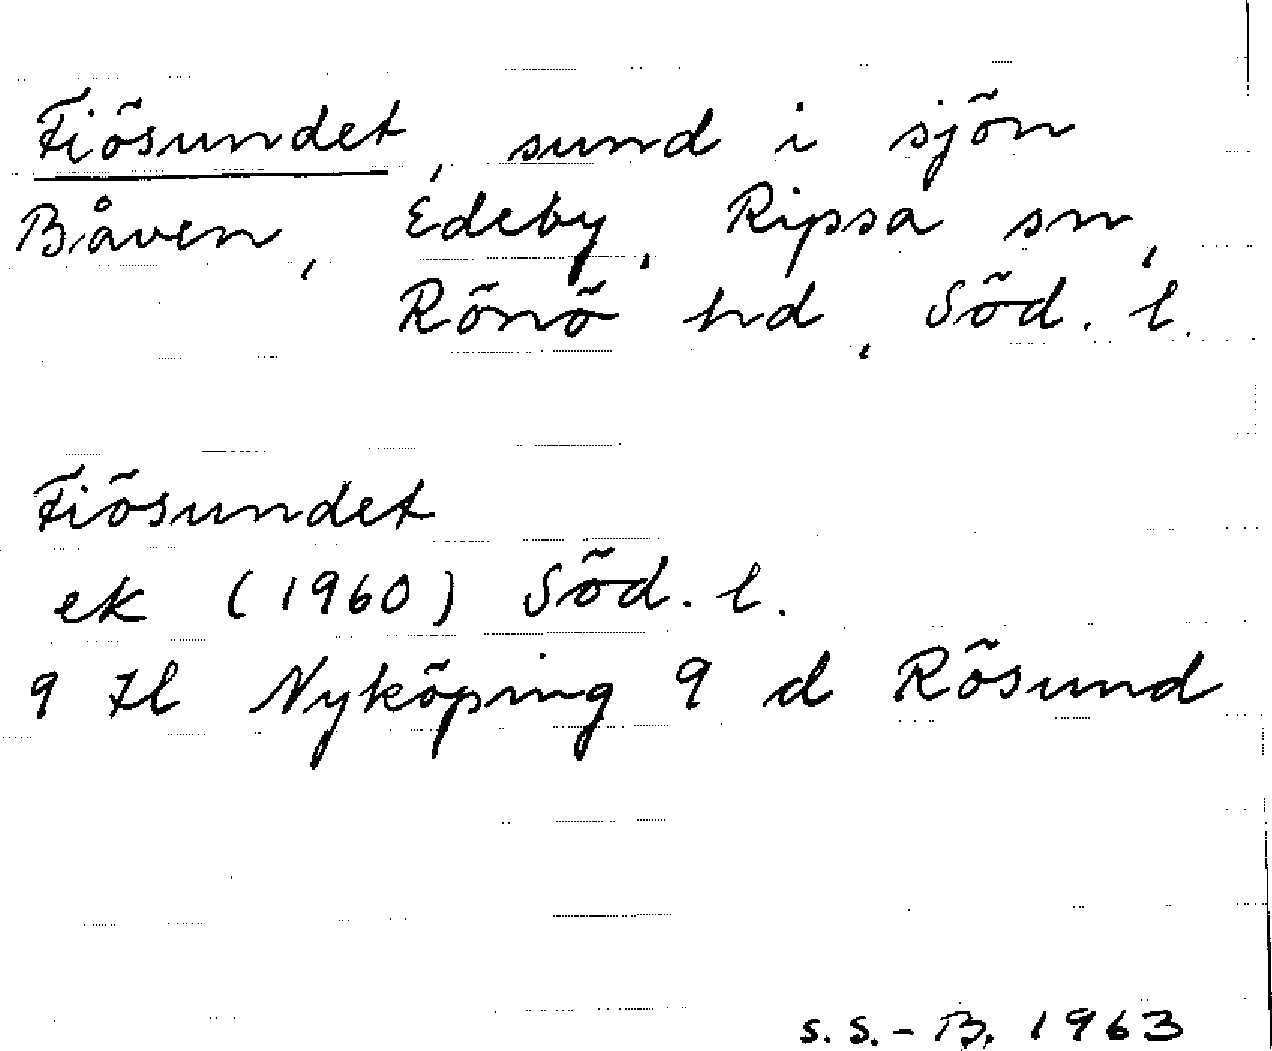 Fiösundet, sund i sjön
Båven, Edeby, Ripsa sn,
Rönö hd, Söd. l.
Fiösundet
ek (1960) Söd. l.
9 Nyköping 9 d Rösund
S. S.-B. 1963